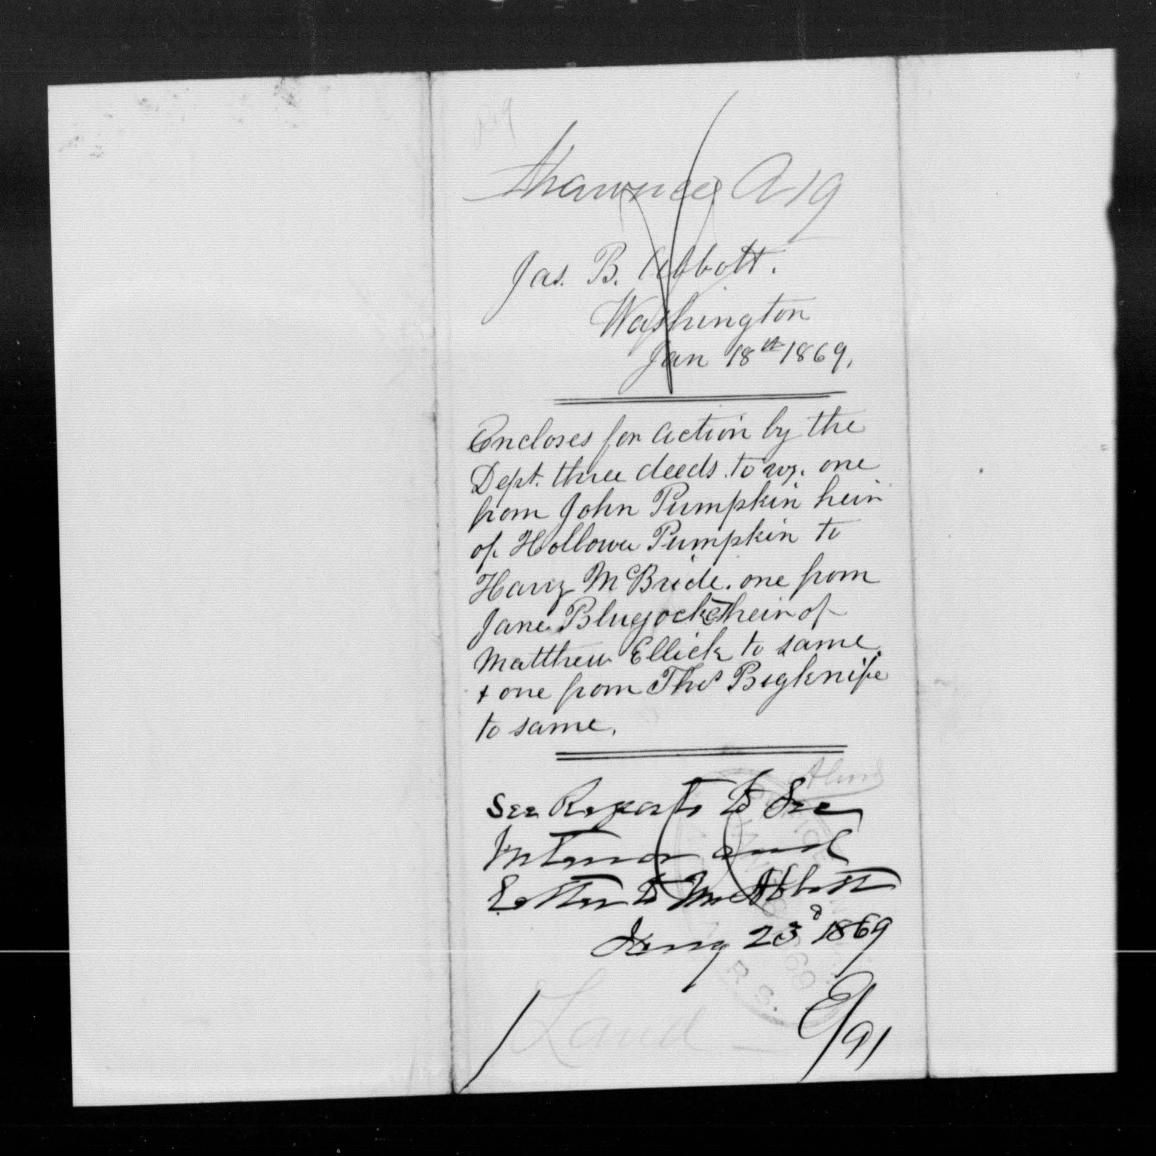 A19
Shawnee A19
Jas. B. Abbott.
Washington
Jan 18th 1869.
Encloses for action by the
Dept. three deeds. to wz. one
from John Pumpkin heir
of Hollowa Pumpkin to
Harry McBride. one from
Jane Blugocket heir of
Matthew Ellick to same
& one from Thos Bigknife
to same.
See Reports to Sec
Interior and
Letter to Mr Abbott
Jany 23d 1869
Land
E/91